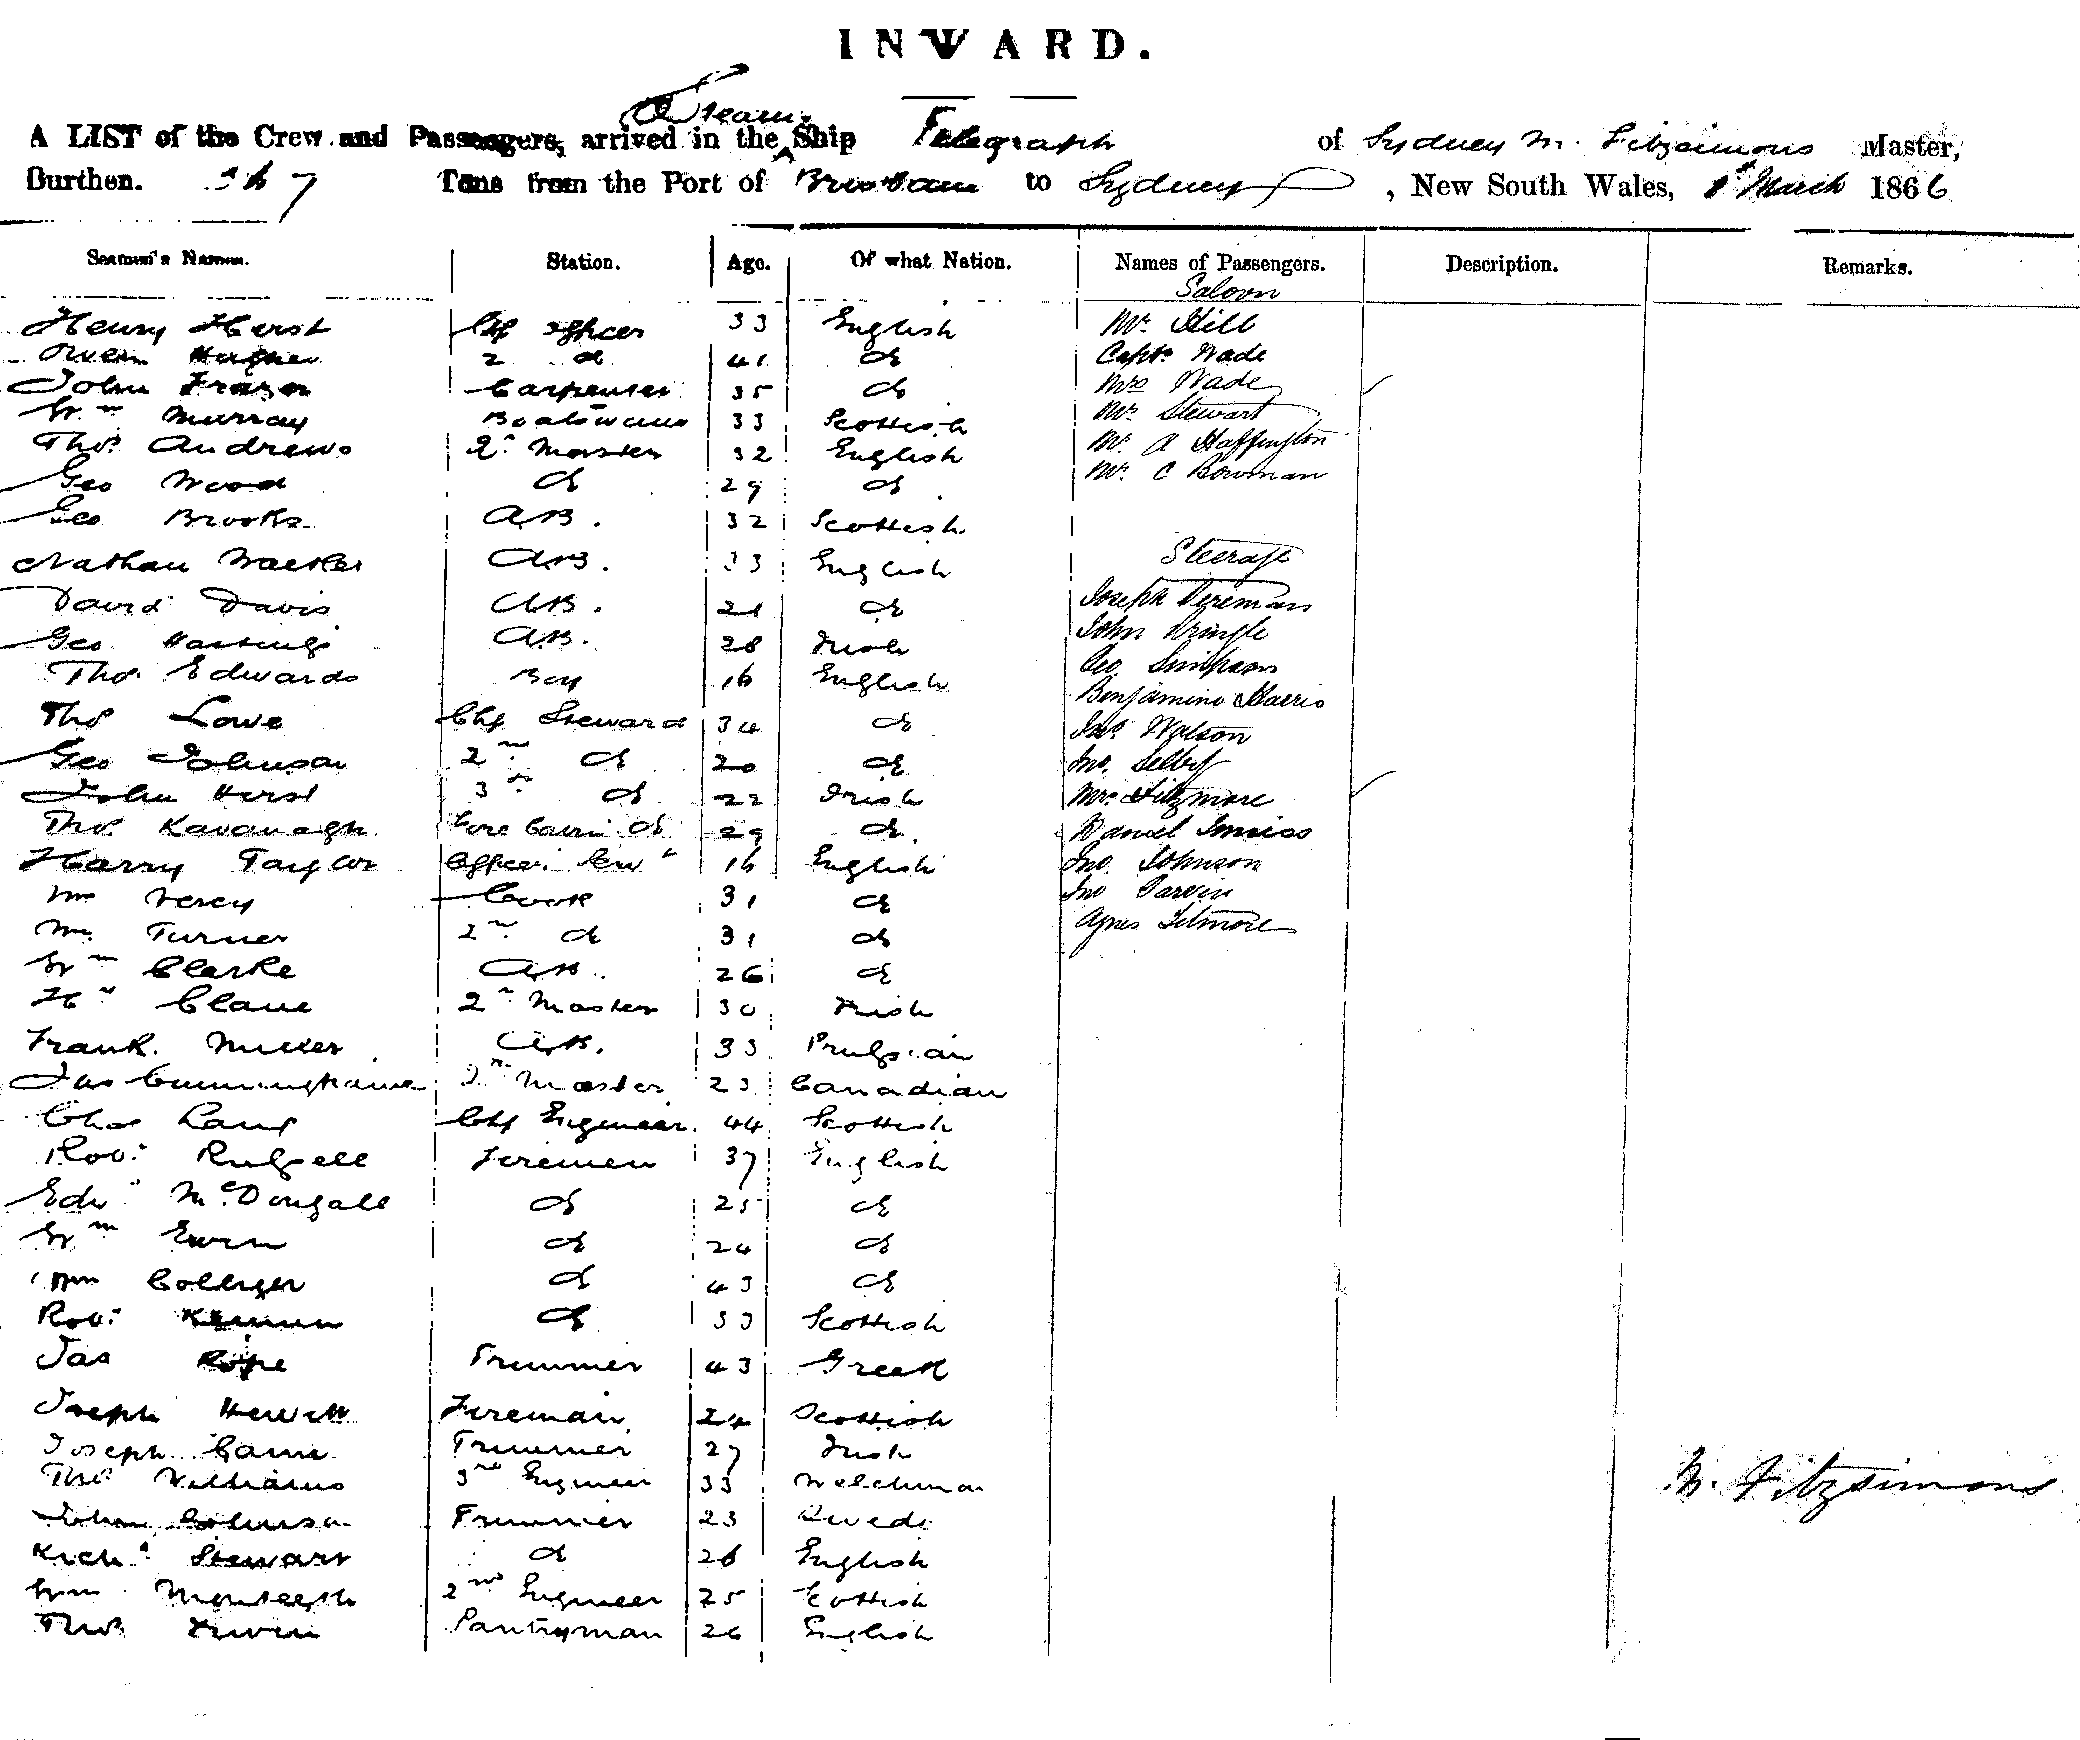 INWARD.
Steam
A LIST of the Crew and Passengers, arrived in the ^ Ship Telegraph of Sydney M. Fitzsimons Master,
Burthen. 367 Tons from the Port of Brisbane to Sydney, New South Wales, 1 March 1866
Seamen's Names. Station. Age. Of what Nation. Names of Passengers. Description. Remarks.
Saloon
Henry Hurst Chf officer 33 English Mr. Hill
Owen Hughes 2 do 41 do Capt. Wade
John Frazer Carpenter 35 do Mrs Wade
Wm Murray Boatswain 33 Scottish Mr. Stewart
Thos Andrews 2r Master 32 English Mr. A Haffington
Geo Wood do 29 do Mr. C Bowman
Geo Brooks AB. 32 Scottish
Nathan Walker AB. 33 English Steerage
David Davis AB. 21 do Joseph
Geo Hastings AB. 28 Irish John Pringle
Thos Edwards Boy 16 English Geo Simpson
Benjamine Harris
Thos Lowe Chf Steward 34 do Jno. Watson
Geo Johnson 2nd do 20 do Jno. Selby
John Hurst 3rd do 22 Irish Mrs. Fitzmore
Thos Kavanagh Fore Cabin do 29 do Daniel
Harry Taylor Officers 16 English Jno. Johnson
Wm Verey Cook 31 do Jno
Wm Turner 2nd do 31 do Agnes
Wm Clarke AB. 26 do
Hy Clane 2r Master 30 Irish
Frank. Miller AB. 33 Prussian
Jas Cunninghame 2r Master 23 Canadian
Chas Lang Chf Engineer 44 Scottish
Robt Russell Firemen 37 English
Edwd McDougall do 25 do
Wm Ewen do 24 do
Wm do 43 do
Robt do 33 Scottish
Jas Rope Trimmer 43 Greek
Joseph Hewett Fireman 24 Scottish
Joseph Cain Trimmer 27 Irish
Thos Williams 3rd Engineer 33 Welchman M. Fitzsimons
John Johnson Trimmer 23 Swede
Richd Stewart do 26 English
Wm Monteith 2nd Engineer 25 Scottish
Thos Pantryman 26 English